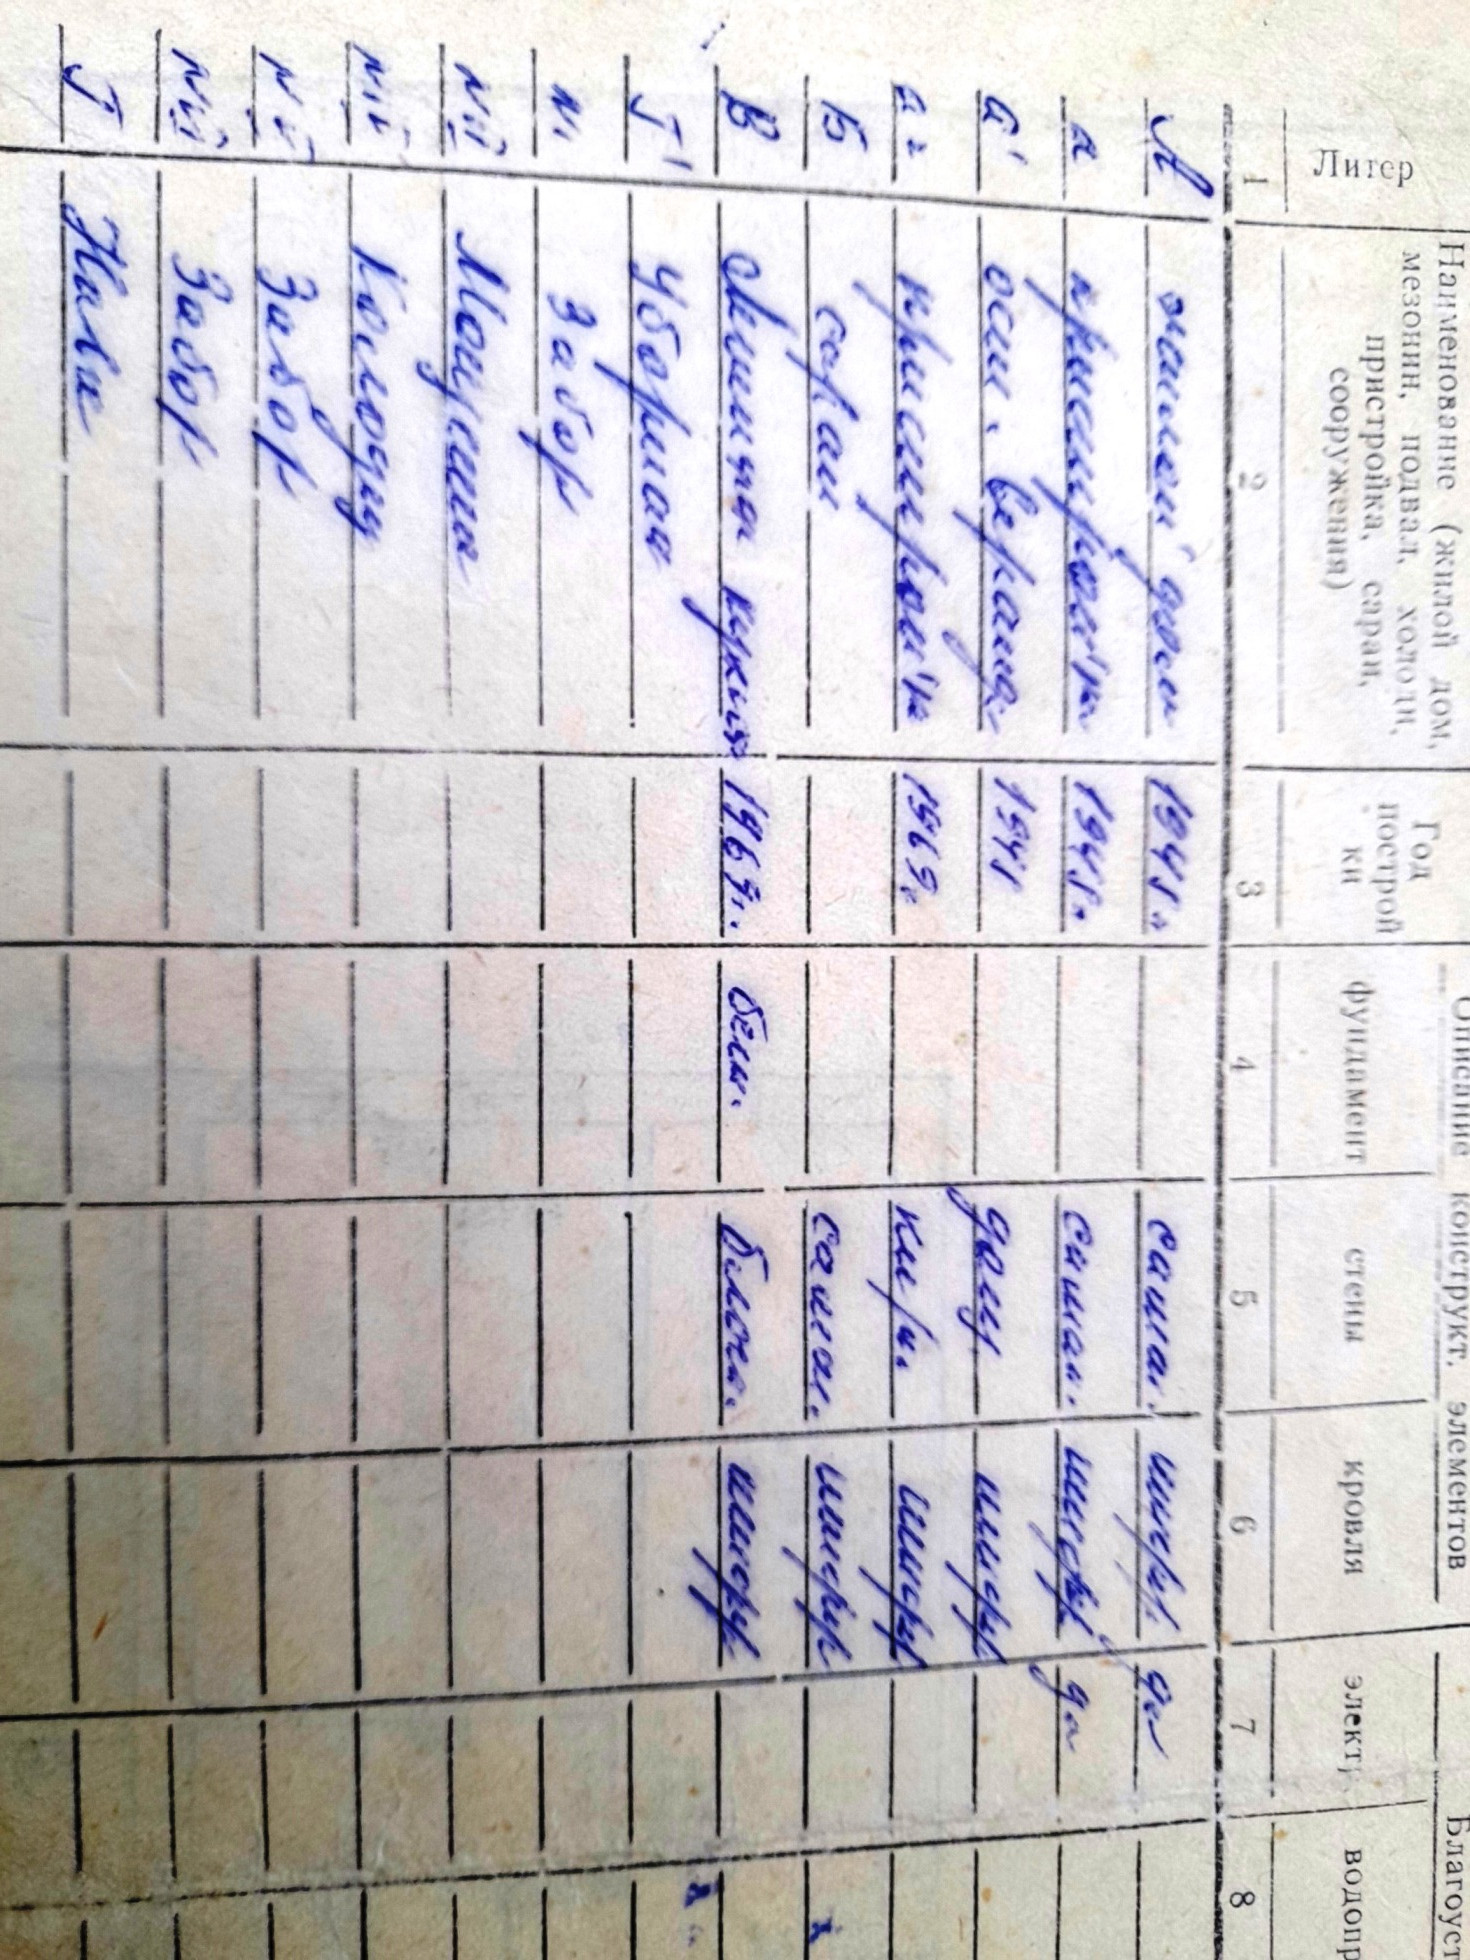 Литер
Наименование (жилой дом,
мезонин, подвал, холодн.
пристройка, сарай,
сооружения)
Год
построй
ки
Описание конструкт. элементов
фундамент
стены
кровля
Благоуст
электр.
водопр
1 2 3 4 5 6 7 8
А жилой дом 1948г. саман. шифер. да
а пристройка 1948г. саман. шифер да
а' осн. веранда 1948 дощ шифер
а2 пристройка 1969г. кирп. шифер
Б сарай саман. шифер
В Летняя кухня 1967г. бетон. блочн. шифер
Г' Уборная
№I Забор
№II Мощение
№III Колодец
Забор
Забор
Г Навес